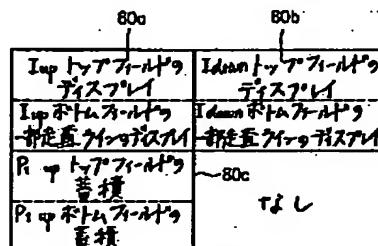 80a
80b
Iup トップフィールドの
ディスプレイ
Idown トップフィールドの
ディスプレイ
Iup ボトムフィールドの
一部走置ラインのディスプレイ
Idown ボトムフィールドの
一部走置ラインのディスプレイ
P1 up トップフィールドの
蓄積
80c
なし
P1 up ボトムフィールドの
蓄積